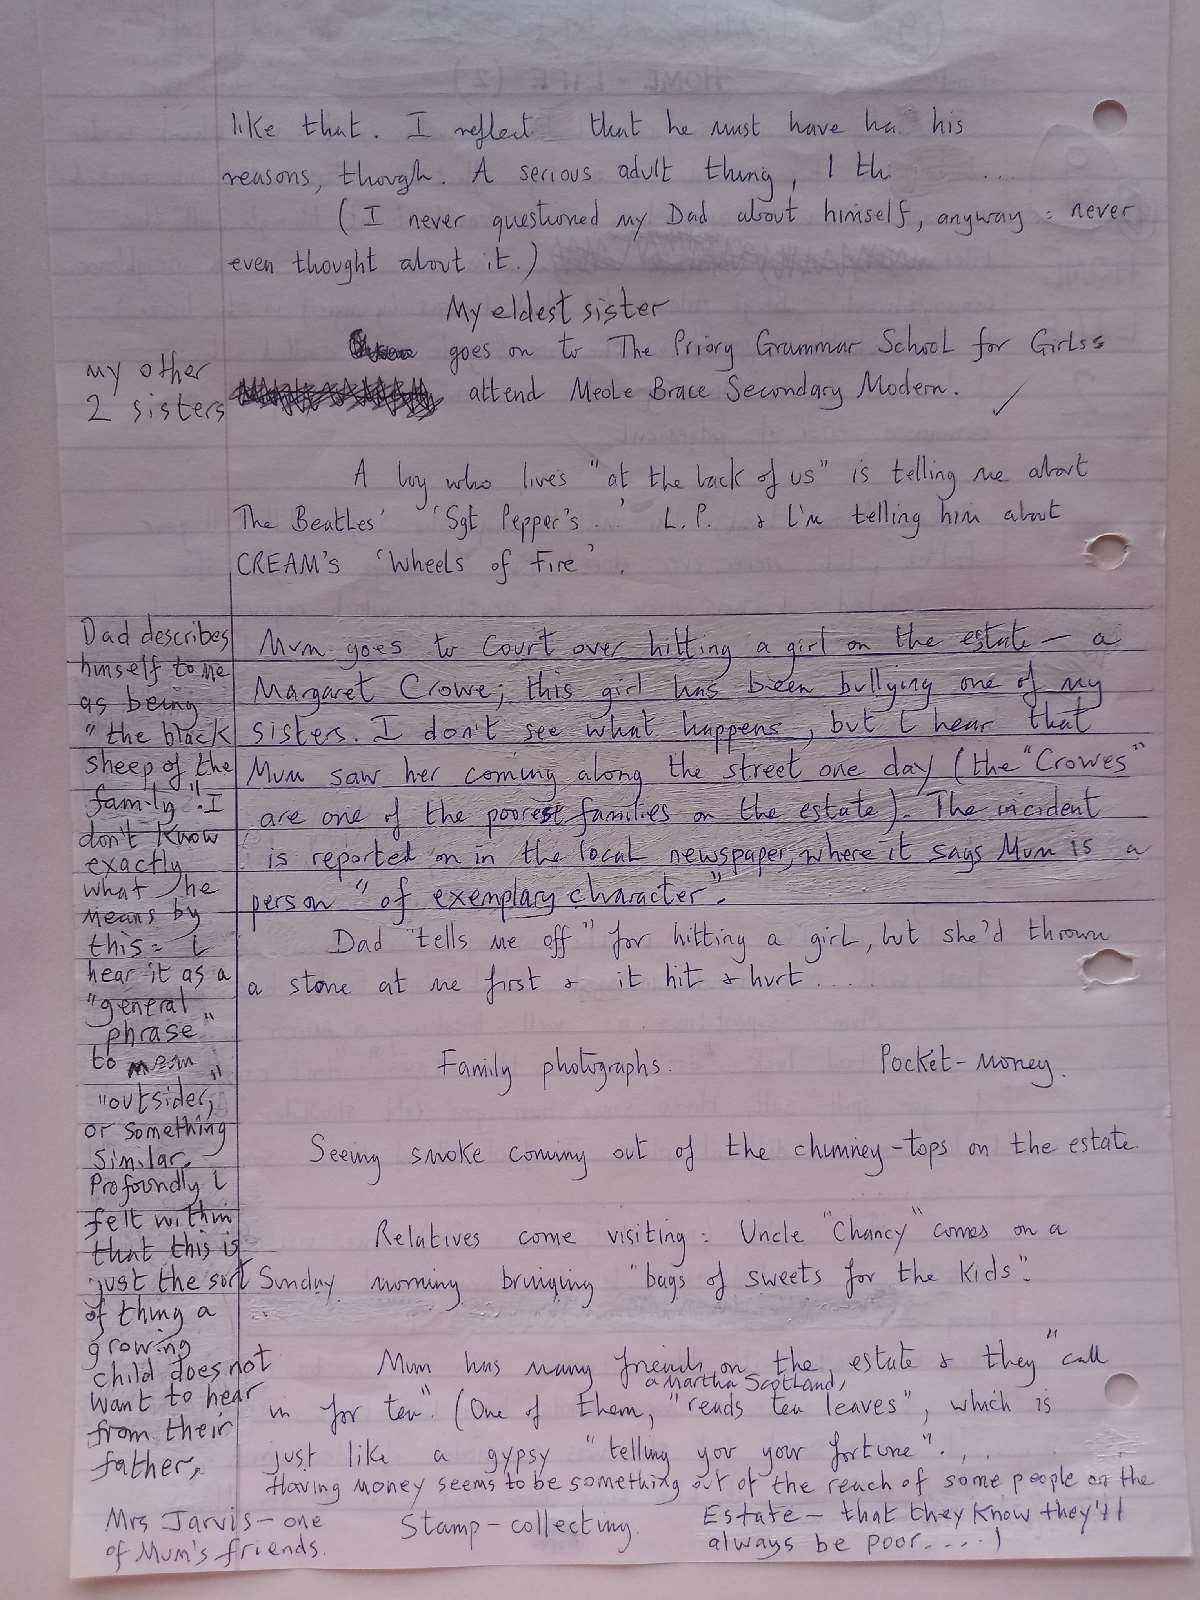 like that. I reflect that he must have ha his
reasons, though. A serious adult thing, I thi ...
(I never questioned my Dad about himself, anyway : never
even thought about it.)
My eldest sister
goes on to The Priory Grammar School for Girls:
my other
2 sisters
attend Meole Brace Secondary Modern. ✓
A boy who lives "at the back of us" is telling me about
The Beatles' 'Sgt Pepper's..' L.P. & I'm telling him about
CREAM's 'Wheels of Fire'.
Mum goes to Court over hitting a girl on the estate – a
Margaret Crowe; this girl has been bullying one of my
sisters. I don't see what happens, but I hear that
Mum saw her coming along the street one day (the "Crowes"
are one of the poorest families on the estate). The incident
is reported on in the local newspaper, where it says Mum is a
person "of exemplary character".
Dad "tells me off" for hitting a girl, but she'd thrown
a stone at me first & it hit & hurt.....
Family photographs. Pocket-money.
Seeing smoke coming out of the chimney-tops on the estate.
Relatives come visiting: Uncle "Chancy" comes on a
Sunday morning bringing "bags of sweets for the kids".
Mum has many friends on the estate & they "call
a Martha Scotland,
in for tea". (One of them, "reads tea leaves", which is
just like a gypsy "telling you your fortune"...
Having money seems to be something out of the reach of some people on the
Estate – that they know they'll
always be poor....)
Stamp-collecting.
Dad describes
himself to me
as being
"the black
sheep of the
family". I
don't know
exactly
what he
means by
this: I
hear it as a
"general
phrase"
to mean
"outsider,"
or something
similar.
Profoundly I
felt within
that this is
just the sort
of thing a
growing
child does not
want to hear
from their
father.
Mrs Jarvis – one
of Mum's friends.